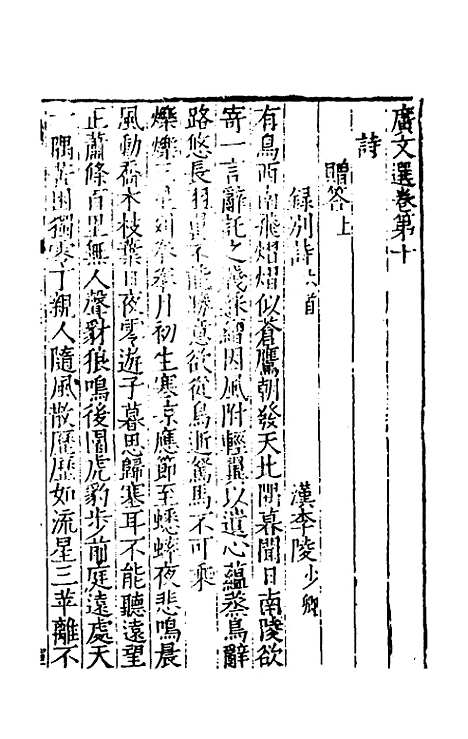 廣文選卷第十
詩
贈答上
録別詩六首 漢李陵少卿
有鳥西南飛熠熠似蒼鷹朝發天北隅暮聞日南陵欲
寄一言辭託之牋綵繒因風附輕翼以遺心蘊蒸鳥辭
路悠長羽翼不能勝意欲從鳥逝駑馬不可乘
爍爍三星列拳拳月初生寒凉應節至蟋蟀夜悲鳴晨
風動喬木枝葉日夜零遊子暮思歸塞耳不能聽遠望
正蕭條百里無人聲豺狼鳴後園虎豹步前庭遠處天
一隅苦困獨零丁親人隨風散歷歷如流星三苹離不